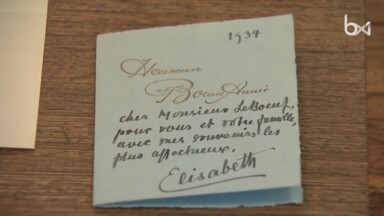 1934
Heureuse
et Bonne Année
cher Monsieur LeBoeuf,
pour vous et votre famille,
avec mes souvenirs les
plus affectueux.
Elisabeth